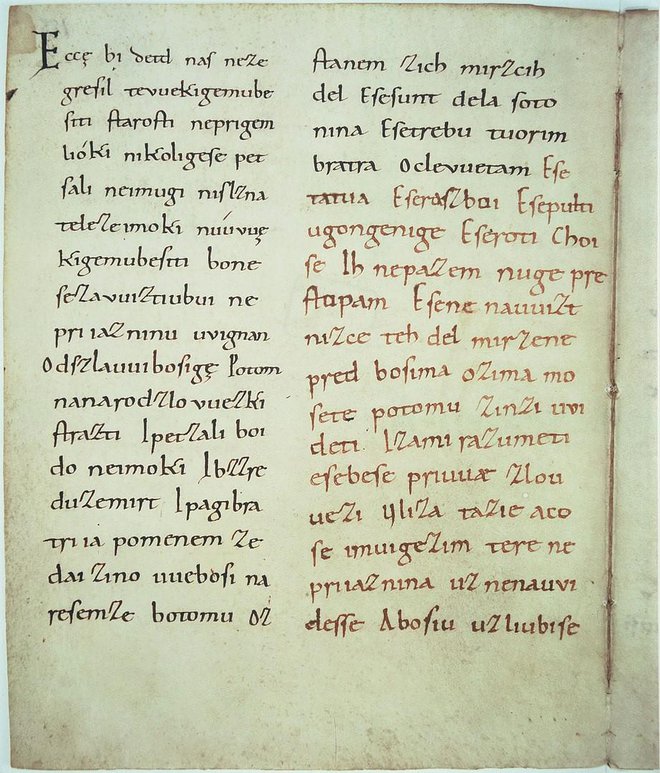 Eccę bi detd naſ neze
greſil tevuekigemube
ſiti ſtaroſti neprigem
lióki nikoligeſe pet
ſali neimugi niſlzna
teleze imoki núuvvę
kigemubeſiti bone
ſezavuiztiubui ne
priiazninu uvignan
Odszlauvuiboſigę Potom
nanarodzlovuezki
ſtrazti Ipetzali boi
do neimoki Ibzzre
duzemirt Ipagibra
triia pomenem ze
dai zino vuebosi na
resemze botomu oz
ſtanem zich mirzcih
del Eſeſunt dela ſoto
nina Eſetrebu tuorim
bratra Oclevuetam Eſe
tatua Eſerazboi Eſepulti
ugongenige Eſeroti Choi
ſe Ih nepazem nuge pre
ſtupam Eſene nauvizt
nizce teh del mirzene
pred boſima ozima mo
ſete potomu zinzi uvi
deti Izami razumeti
eſebeſe priuvæ zlou
uezi Uliza tazie aco
ſe imuigezim tere ne
priiaznina uznenauvi
deſſe Aboſiu uzliubiſe